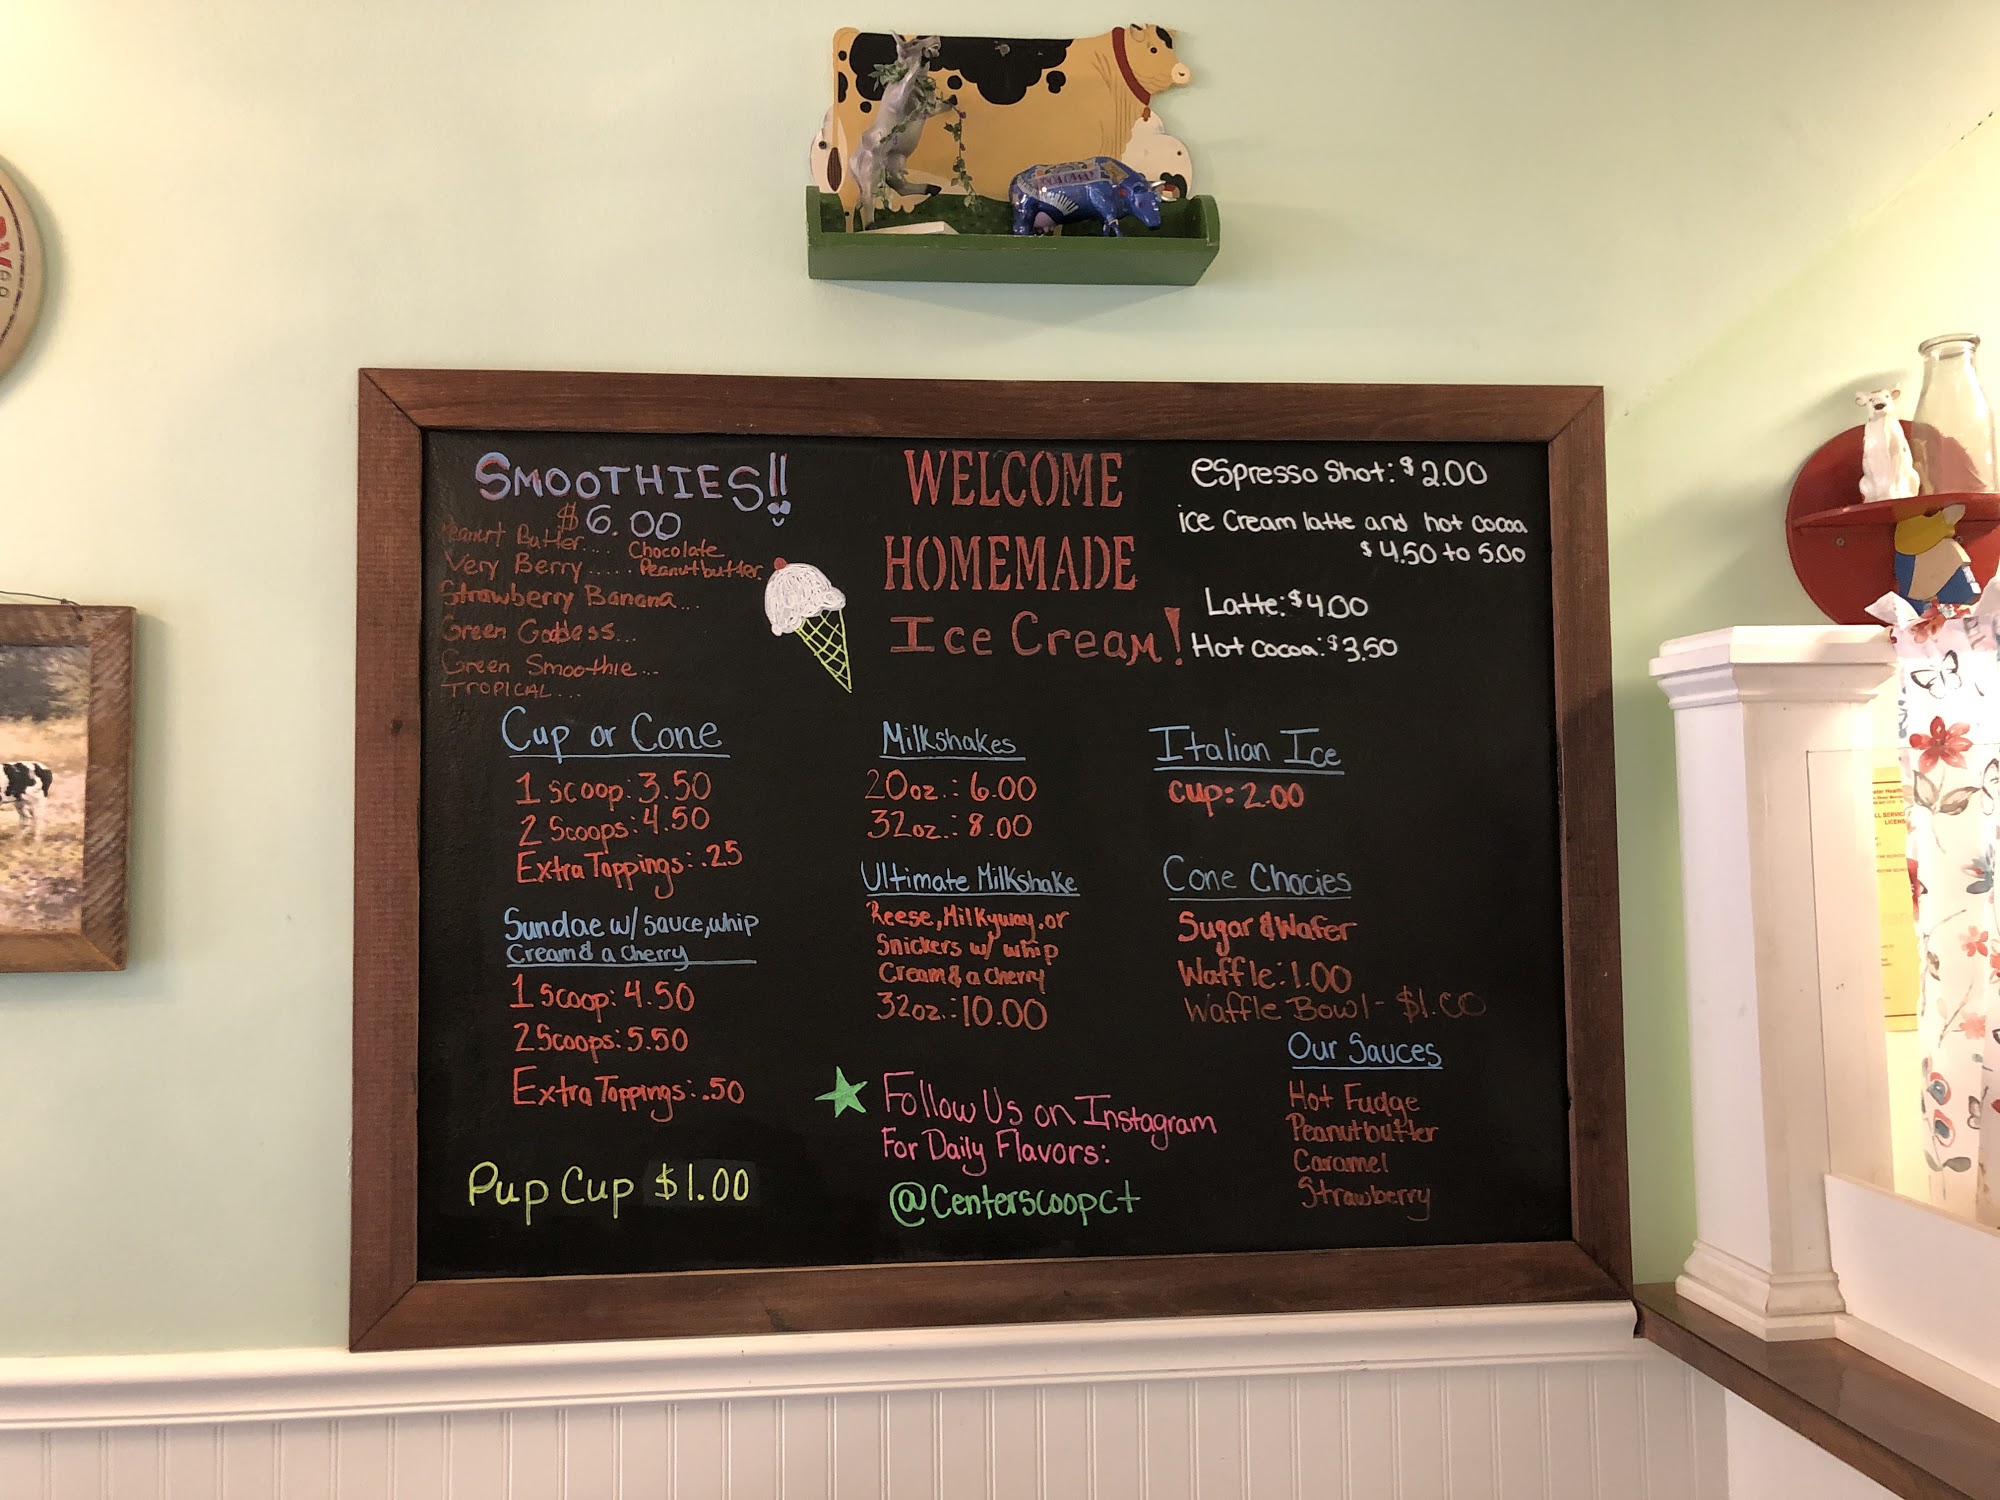 SMOOTHIES!!
$6.00
Peanut Butter... Chocolate
Very Berry..... Peanutbutter.
Strawberry Banana...
Green Goddess...
Green Smoothie...
TROPICAL...
WELCOME
HOMEMADE
Ice Cream!
espresso shot: $2.00
ice cream latte and hot cocoa
$4.50 to 5.00
Latte: $4.00
Hot cocoa: $3.50
Cup or Cone
1 scoop: 3.50
2 Scoops: 4.50
Extra Toppings: .25
Sundae w/ sauce, whip
Cream & a cherry
1 scoop: 4.50
2 Scoops: 5.50
Extra Toppings: .50
Pup Cup $1.00
Milkshakes
20oz.: 6.00
32oz.: 8.00
Ultimate Milkshake
Reese, Milkyway, or
Snickers w/ whip
Cream & a cherry
32oz.: 10.00
Follow Us on Instagram
For Daily Flavors:
@Centerscoopct
Italian Ice
Cup: 2.00
Cone Chocies
Sugar & Wafer
Waffle: 1.00
Waffle Bowl - $1.00
Our Sauces
Hot Fudge
Peanutbutter
Caramel
Strawberry